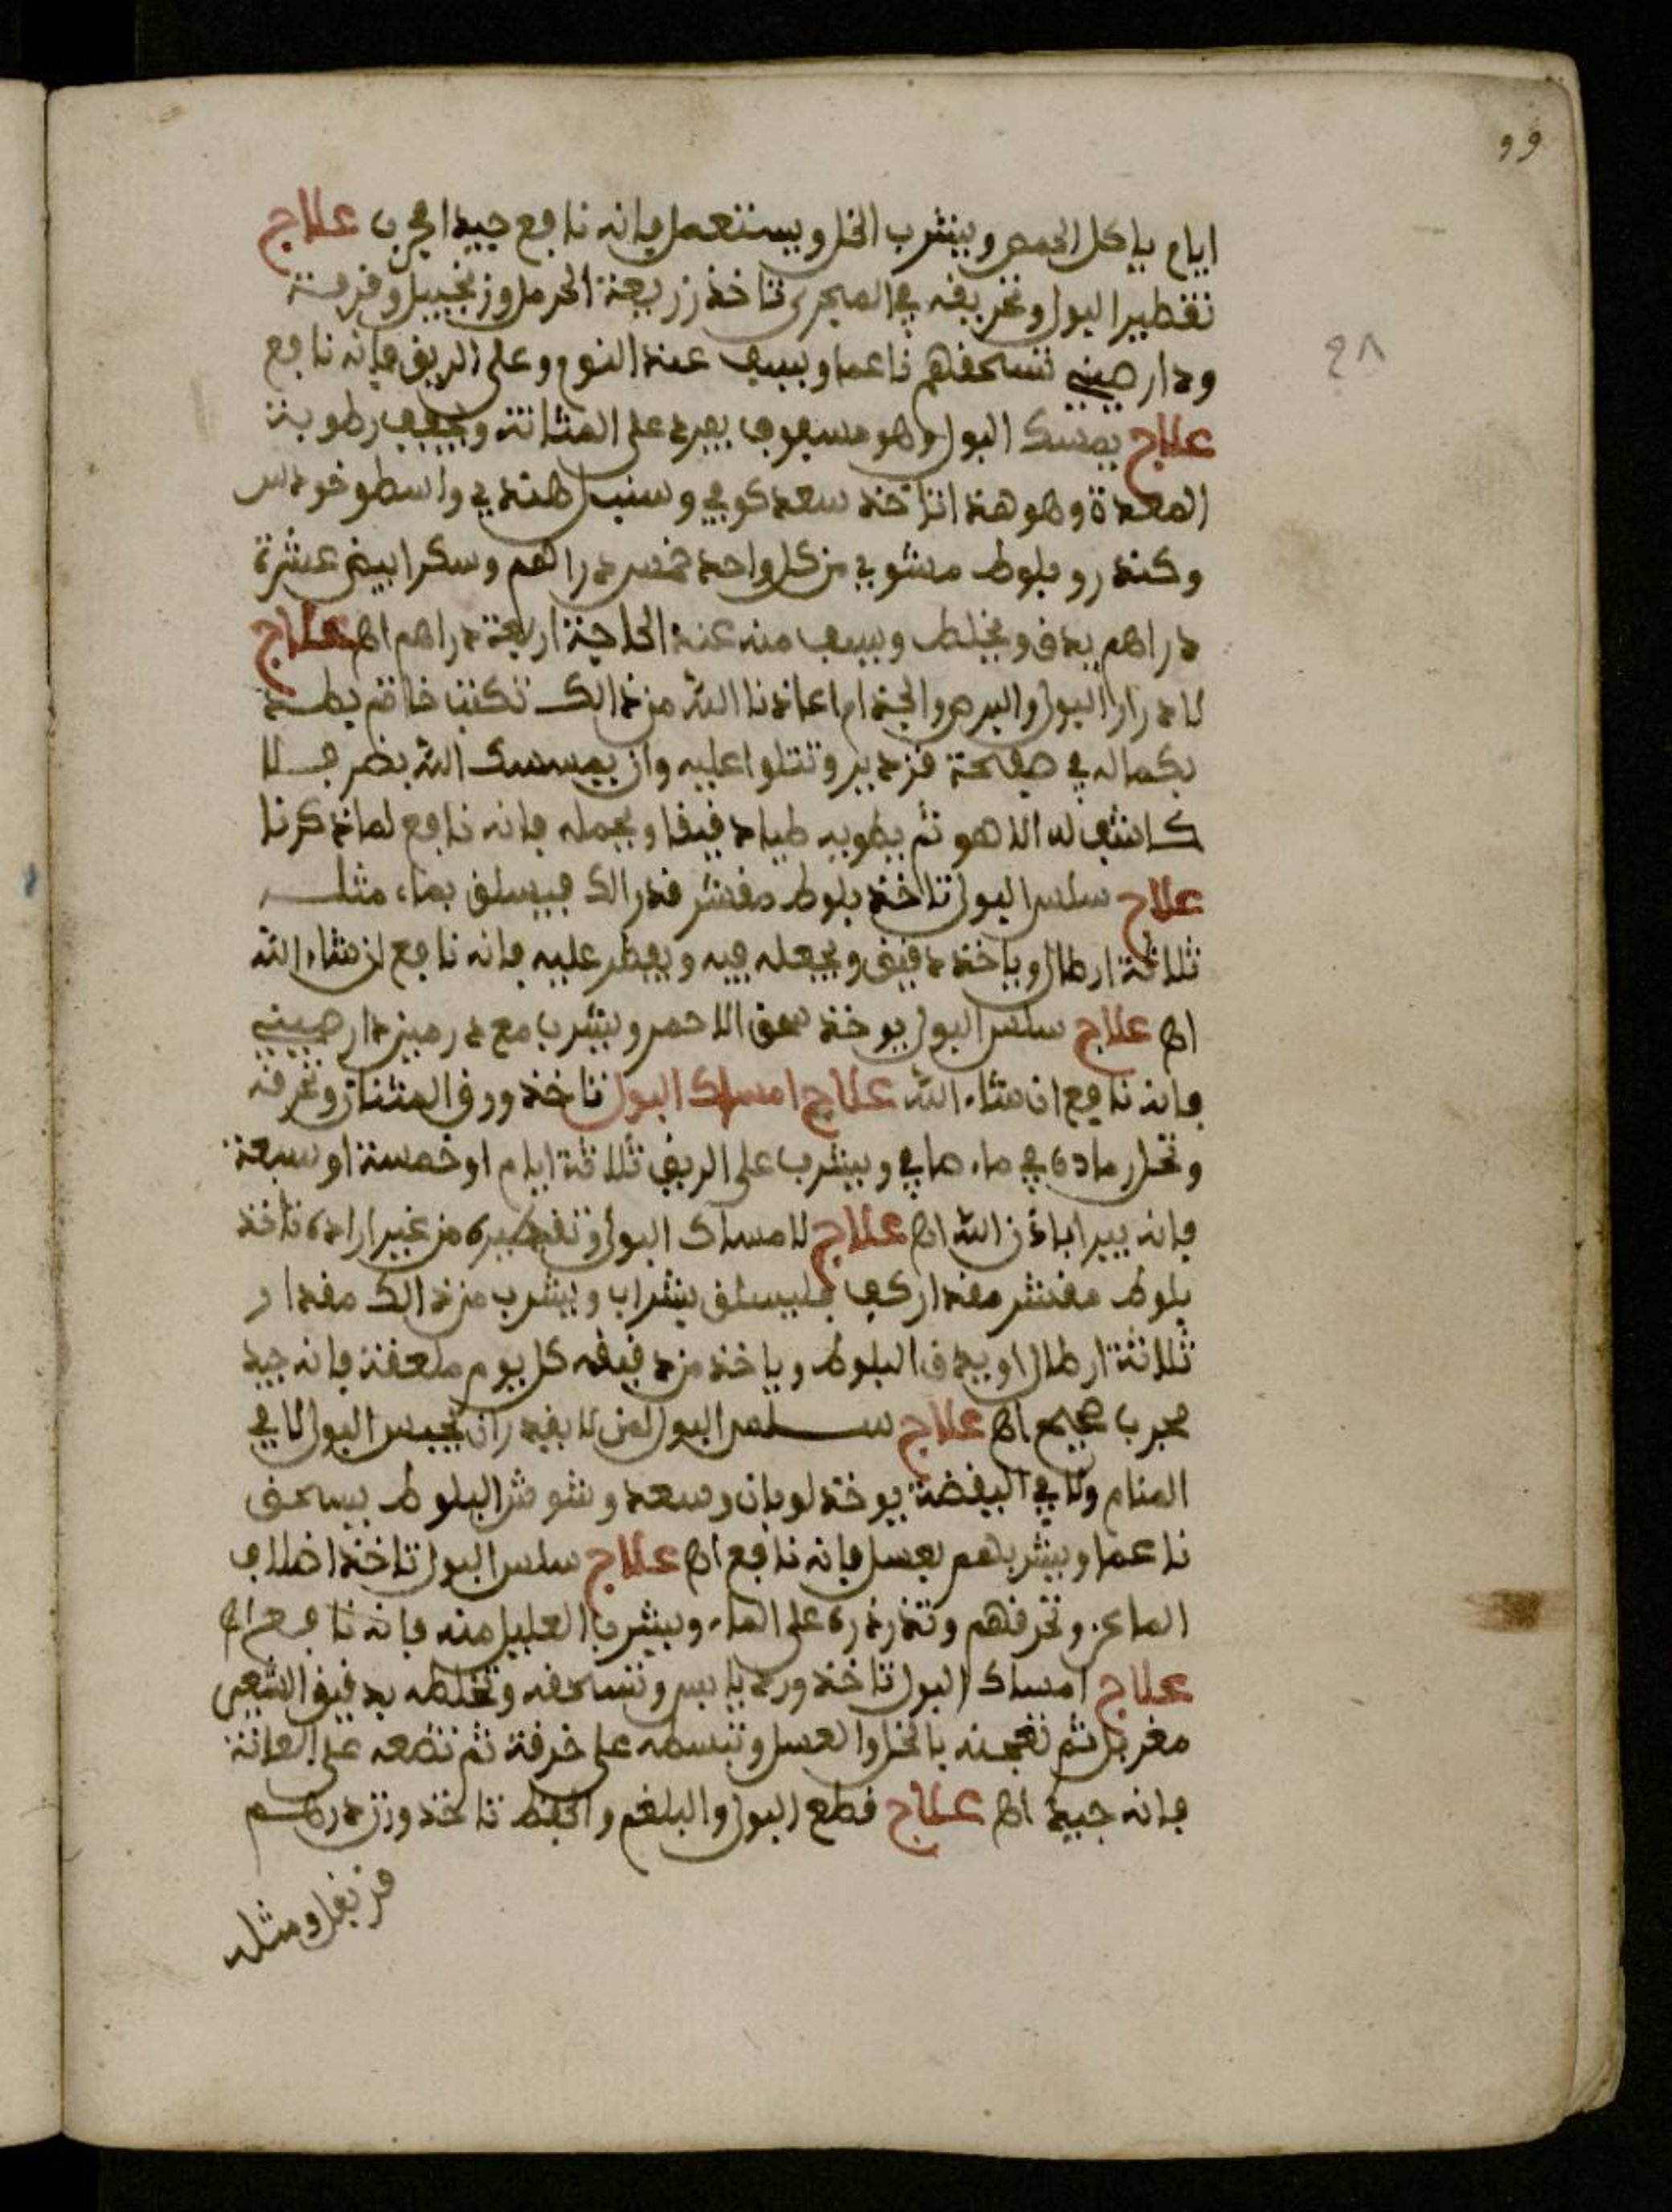 ايام ياكل الحمص ويشرب الخل ويستعمل فانه نافع جيدا مجرب علاج
تقطير البول وتحريقه في المجرى تاخذ زريعة الحرمل وزنجبيل وقرفة
ودار صيني تسحقهم ناعما ويسف عند النوم وعلى الريق فانه نافع
علاج يمسك البول وهو سفوف يبرد على المثانة ويجفف رطوبة
المعدة وهو هذا تاخذ سعد كوفي وسنبل هندي واسطوخودس
وكندر وبلوط مشوي من كل واحد خمس دراهم وسكر ابيض عشرة
دراهم يدق ويخلط ويسف منه عند الحاجة اربعة دراهم اهـ علاج
لادرار البول والبرص والجذام اعاذنا الله من ذالك تكتب خاتم بطد
بكماله في صفحة قزدير وتتلوا عليه وان يمسسك الله بضر فلا
كاشف له الا هو ثم يطويه طيا دقيقا ويحمله فانه نافع لما ذكرنا
علاج سلس البول تاخذ بلوط مقشر قدر الك فيسلق بماء مثل
ثلاثة ارطال وياخذ دقيق ويجعله فيه ويفطر عليه فانه نافع ان شاء الله
اهـ علاج سلس البول يوخذ سمق الاحمر ويشرب مع درمين دار صيني
فانه نافع ان شاء الله علاج امساك البول تاخذ ورق المشتان وتحرقه
وتحل رماده في ماء صافي ويشرب على الريق ثلاثة ايام او خمسة او سبعة
فانه يبرا باذن الله اهـ علاج لامساك البول وتقطيره من غير اراده تاخذ
بلوط مقشر مقدار كف فليسلق بشراب ويشرب من ذالك مقدار
ثلاثة ارطال او يدق البلوط وياخذ من دقيقه كل يوم ملعقة فانه جيد
مجرب صحيح اهـ علاج سلس البول لمن لا يقدر ان يحبس البول لا في
المنام ولا في اليقضة يوخذ لوبان وسعد وشوش البلوط يسحق
ناعما ويشربهم بعسل فانه نافع اهـ علاج سلس البول تاخذ اضلاف
الماعز وتحرقهم وتذرذره على الماء ويشرب العليل منه فانه نافع اهـ
علاج امساك البول تاخذ ورد يابس وتسحقه وتخلطه بدقيق الشعير
مغربل ثم تعجنه بالخل والعسل وتبسطه على خرقة ثم تضعه على العانة
فانه جيد اهـ علاج قطع البول والبلغم والخلط تاخذ وزن درهم
قرنفل ومثله